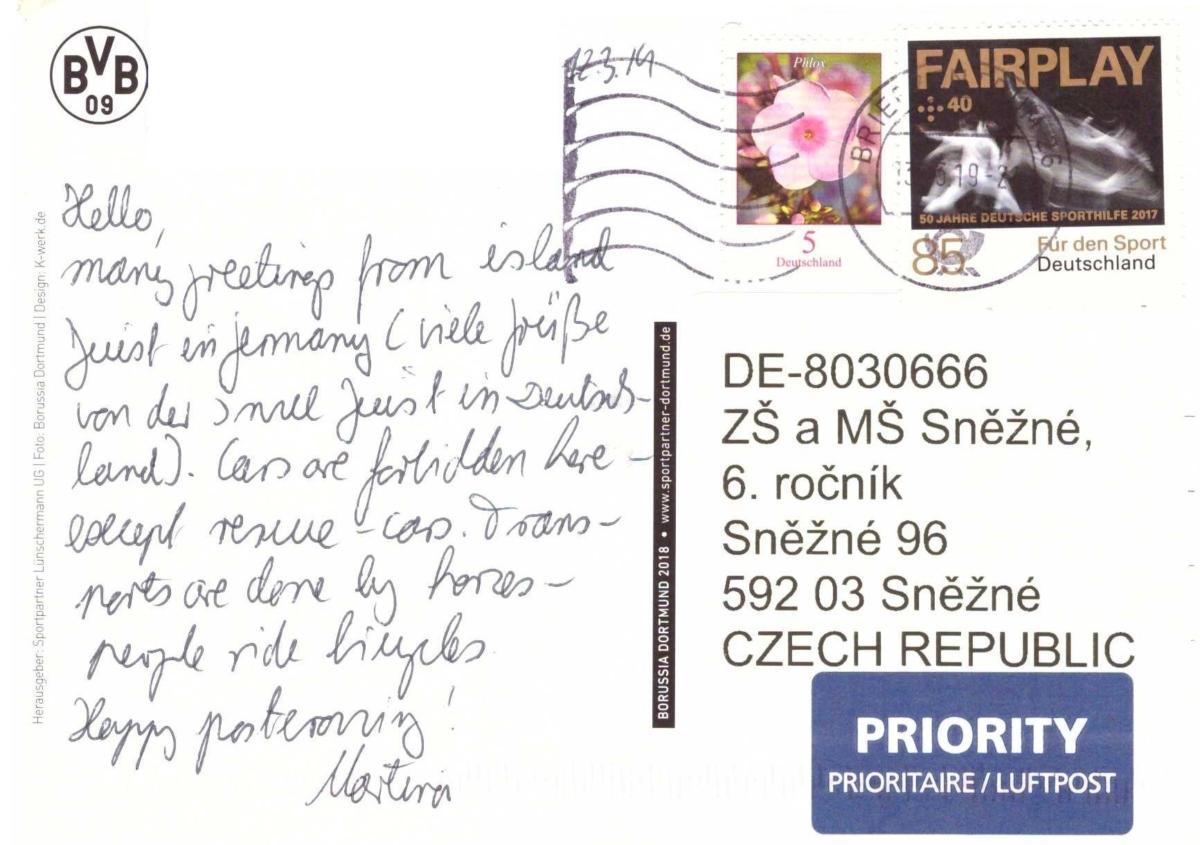 BVB
09
12.3.19
Phlox
5
Deutschland
FAIRPLAY
+40
50 JAHRE DEUTSCHE SPORTHILFE 2017
85
Für den Sport
Deutschland
BRIE
19-2
Hello,
many greetings from island
Juist in Jermany (viele Grüße
von der Insel Juist in Deutsch-
land). Cars are forbidden here -
except rescue-cars. Trans-
ports are done by horses -
people ride bicycles.
Happy postcrossing!
Martina
Herausgeber: Sportpartner Lünschermann UG | Foto: Borussia Dortmund | Design: K-werk.de
BORUSSIA DORTMUND 2018 • www.sportpartner-dortmund.de
DE-8030666
ZŠ a MŠ Sněžné,
6. ročník
Sněžné 96
592 03 Sněžné
CZECH REPUBLIC
PRIORITY
PRIORITAIRE / LUFTPOST